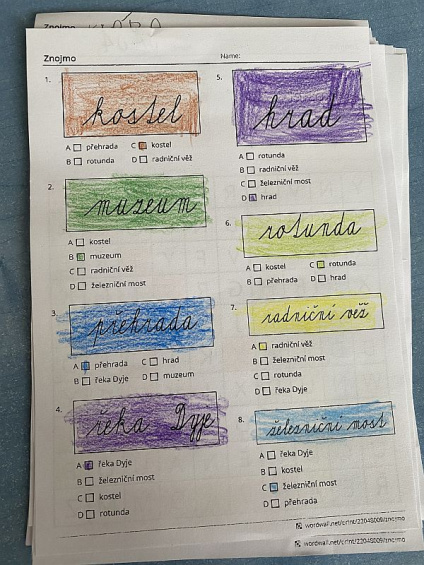 Znojmo
Name:
1.
kostel
A přehrada C kostel
B rotunda D radniční věž
2.
muzeum
A kostel
B muzeum
C radniční věž
D železniční most
3.
přehrada
A přehrada C hrad
B řeka Dyje D muzeum
4.
řeka Dyje
A řeka Dyje
B železniční most
C kostel
D rotunda
5.
hrad
A rotunda
B radniční věž
C železniční most
D hrad
6.
rotunda
A kostel C rotunda
B přehrada D hrad
7.
radniční věž
A radniční věž
B železniční most
C rotunda
D řeka Dyje
8.
železniční most
A řeka Dyje
B kostel
C železniční most
D přehrada
wordwall.net/print/22048009/znojmo
wordwall.net/print/22048009/znojmo